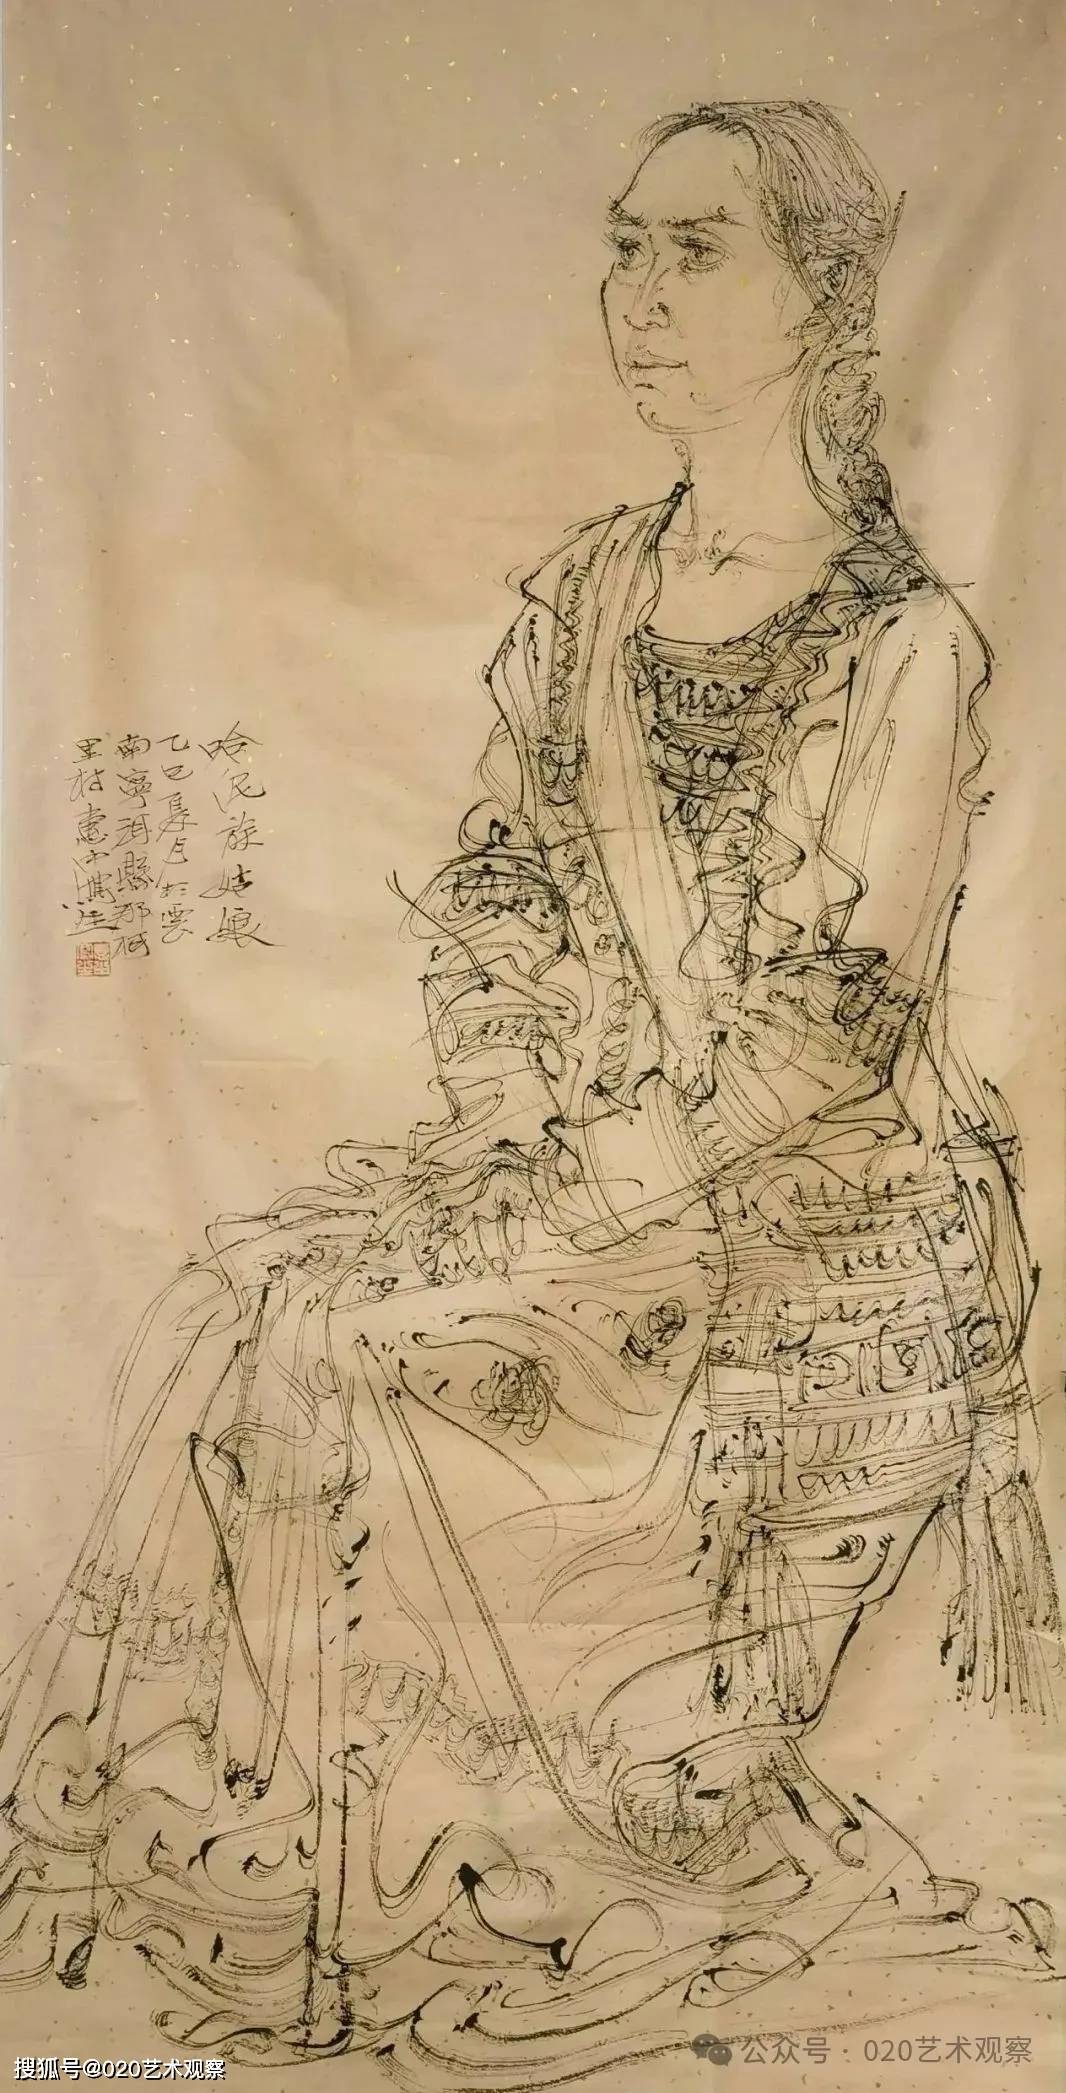 哈尼族姑娘
乙巳夏月於雲
南寧洱縣那柯
里村寫
搜狐号@020艺术观察
公众号 · 020艺术观察